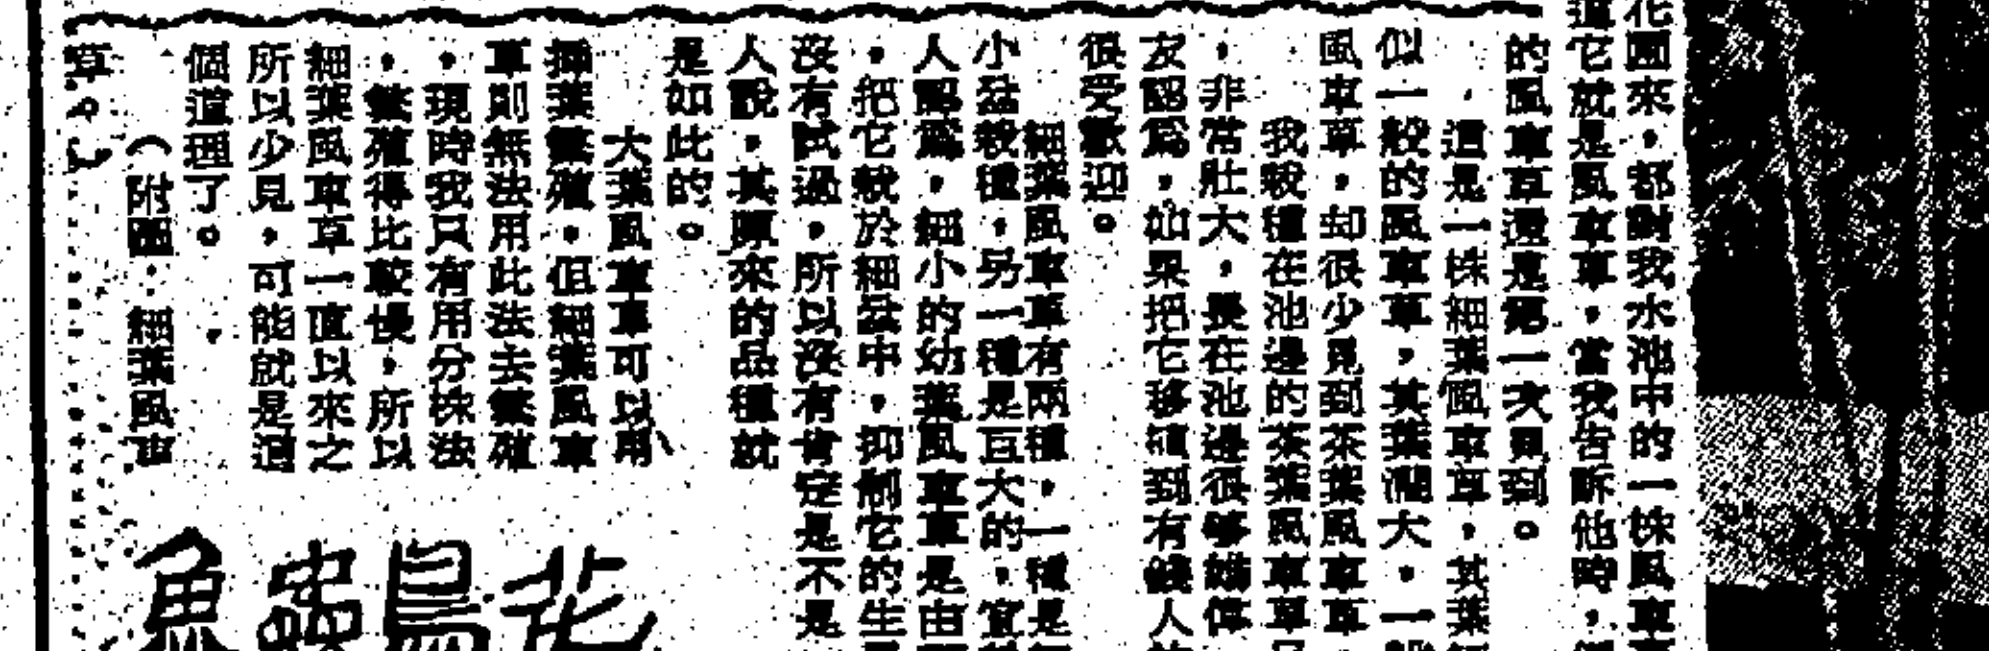 花園來，都對我水池中的一株風車
道它就是風車草，當我告訴他時，
的風車草還是第一次見到。
這是一株細葉風車草，其葉
似一般的風車草，其葉濶大，一般
風車草，却很少見到茶葉風車草，
我栽種在池邊的茶葉風車草
，非常壯大，長在池邊很够
友認爲，如果把它移植到有錢人
很受歡迎。
細葉風車草有兩種，一種是
小盆栽種，另一種是巨大的，宜
人認爲，細小的幼葉風車草是由
，把它栽於細盆中，抑制它的生
沒有試過，所以沒有肯定是不是
人說，其原來的品種就
是如此的。
大葉風車草可以用
插葉繁殖，但細葉風車
草則無法用此法去繁殖
，現時我只有用分株法
，繁殖得比較慢，所以
細葉風車草一直以來之
所以少見，可能就是這
個道理了。
（附圖：細葉風車
草。）
花鳥蟲魚